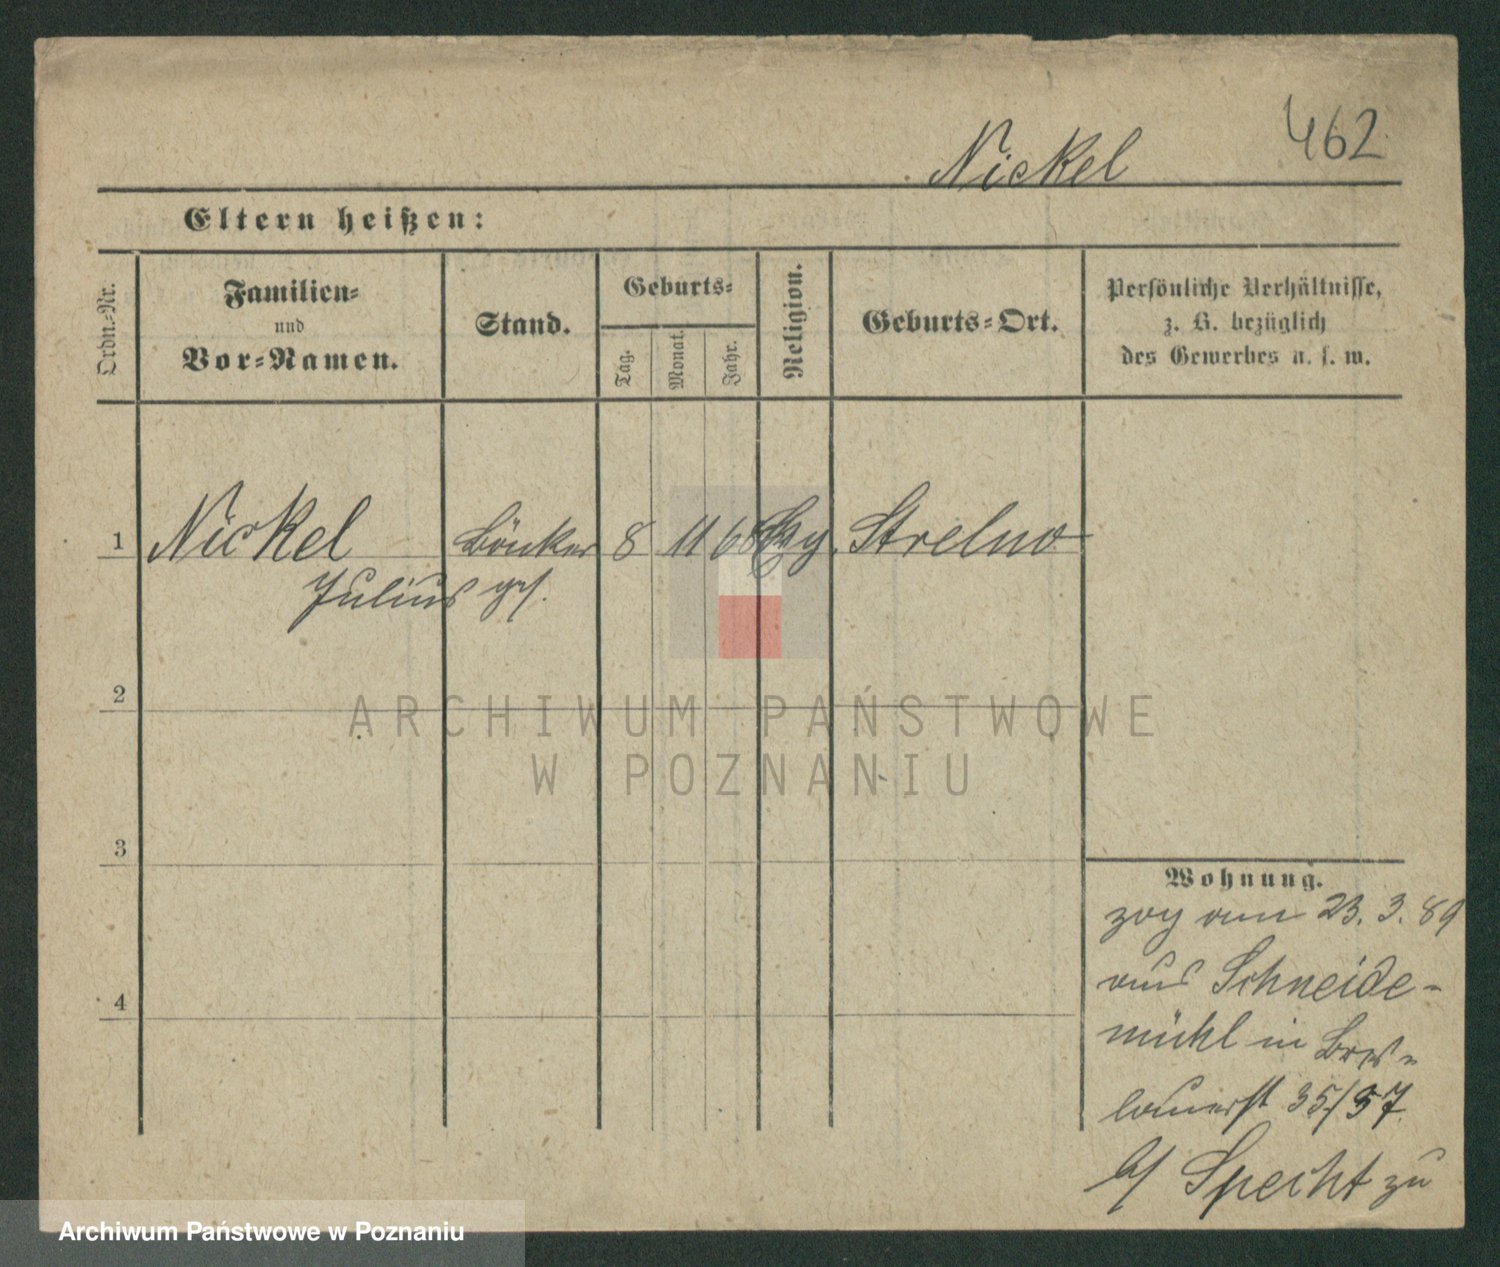 462
Nickel
Eltern heißen:
Ordn.-Nr.
Familien-
und
Vor-Namen.
Stand.
Geburts-
Tag.
Monat.
Jahr.
Religion.
Geburts-Ort.
Persönliche Verhältnisse,
z. B. bezüglich
des Gewerbes u. s. w.
1 Nickel Bäcker 8 11 68 Strelno
Julius
2
ARCHIWUM PAŃSTWOWE
W POZNANIU
3
4
Wohnung.
zog am 23. 3. 89
aus Schneide-
mühl in Bres-
lauerst 35/37
b/ Specht zu
Archiwum Państwowe w Poznaniu